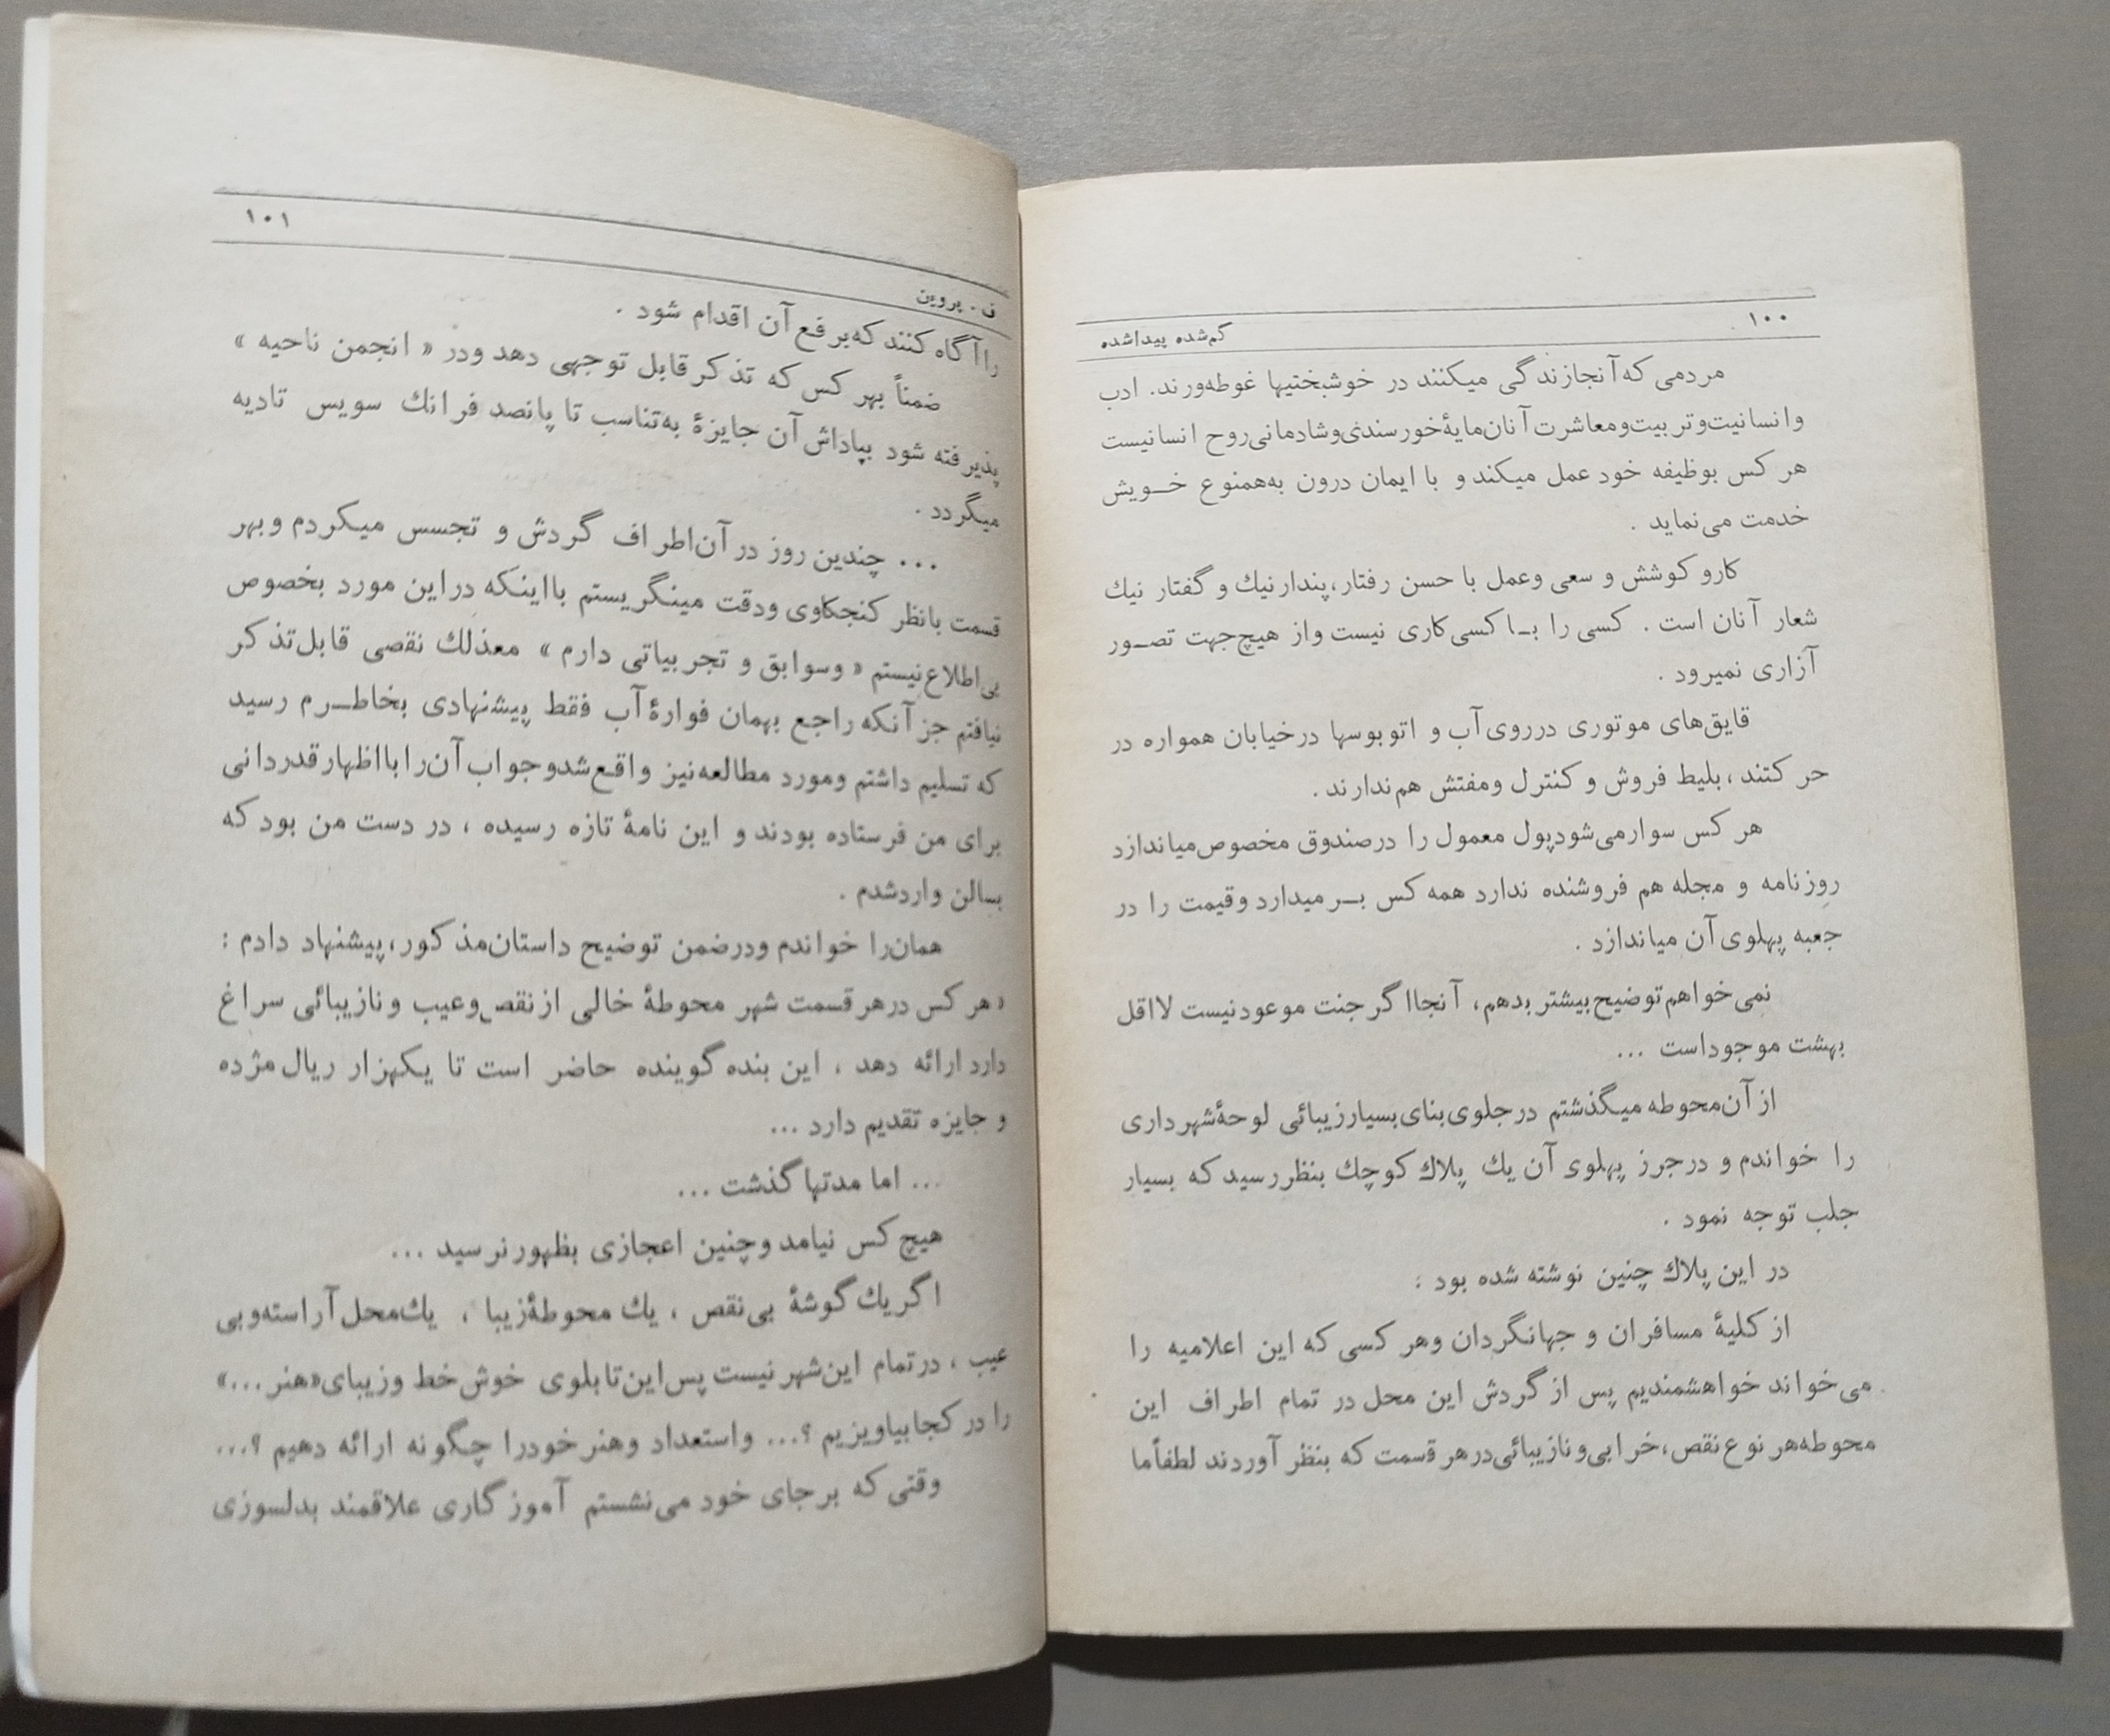 ۱۰۰ گم‌شده پیداشده
مردمی که آنجا زندگی میکنند در خوشبختیها غوطه‌ورند. ادب
وانسانیت وتربیت ومعاشرت آنان مایهٔ خورسندی وشادمانی روح انسانیست
هر کس بوظیفه خود عمل میکند و با ایمان درون به‌همنوع خـــویش
خدمت می‌نماید .
کارو کوشش و سعی وعمل با حسن رفتار، پندار نیك و گفتار نیك
شعار آنان است . کسی را بــا کسی کاری نیست واز هیچ جهت تصــور
آزاری نمیرود .
قایق‌های موتوری درروی آب و اتوبوسها درخیابان همواره در
حر کتند ، بلیط فروش و کنترل ومفتش هم ندارند .
هر کس سوار می‌شود پول معمول را درصندوق مخصوص میاندازد
روزنامه و مجله هم فروشنده ندارد همه کس بــر میدارد وقیمت را در
جعبه پهلوی آن میاندازد .
نمی‌خواهم توضیح بیشتر بدهم، آنجا اگر جنت موعود نیست لااقل
بهشت موجود است ...
از آن محوطه میگذشتم در جلوی بنای بسیار زیبائی لوحهٔ شهرداری
را خواندم و در جرز پهلوی آن یك پلاك کوچك بنظر رسید که بسیار
جلب توجه نمود .
در این پلاك چنین نوشته شده بود :
از کلیهٔ مسافران و جهانگردان وهر کسی که این اعلامیه را
می‌خواند خواهشمندیم پس از گردش این محل در تمام اطراف این
محوطه هر نوع نقص، خرابی و نازیبائی در هر قسمت که بنظر آوردند لطفاً ما
ن . پروین ۱۰۱
را آگاه کنند که بر فع آن اقدام شود .
ضمناً بهر کس که تذکر قابل توجهی دهد ودر « انجمن ناحیه »
پذیرفته شود بپاداش آن جایزهٔ به‌تناسب تا پانصد فرانك سویس تادیه
میگردد .
... چندین روز در آن اطراف گردش و تجسس میکردم و بهر
قسمت بانظر کنجکاوی ودقت مینگریستم بااینکه در این مورد بخصوص
بی اطلاع نیستم « وسوابق و تجربیاتی دارم » معذلك نقصی قابل تذکر
نیافتم جز آنکه راجع بهمان فوارهٔ آب فقط پیشنهادی بخاطــرم رسید
که تسلیم داشتم ومورد مطالعه نیز واقع شد و جواب آن را بااظهار قدردانی
برای من فرستاده بودند و این نامهٔ تازه رسیده ، در دست من بود که
بسالن وارد شدم .
همان را خواندم ودرضمن توضیح داستان مذکور، پیشنهاد دادم :
« هر کس در هر قسمت شهر محوطهٔ خالی از نقص وعیب و نازیبائی سراغ
دارد ارائه دهد ، این بنده گوینده حاضر است تا یکهزار ریال مژده
و جایزه تقدیم دارد ...
... اما مدتها گذشت ...
هیچ کس نیامد و چنین اعجازی بظهور نرسید ...
اگر یك گوشهٔ بی نقص ، یك محوطهٔ زیبا ، یك محل آراسته و بی
عیب ، در تمام این شهر نیست پس این تابلوی خوش خط و زیبای «هنر ...»
را در کجا بیاویزیم ؟... واستعداد وهنر خودرا چگونه ارائه دهیم ؟...
وقتی که بر جای خود می‌نشستم آموزگاری علاقمند بدلسوزی